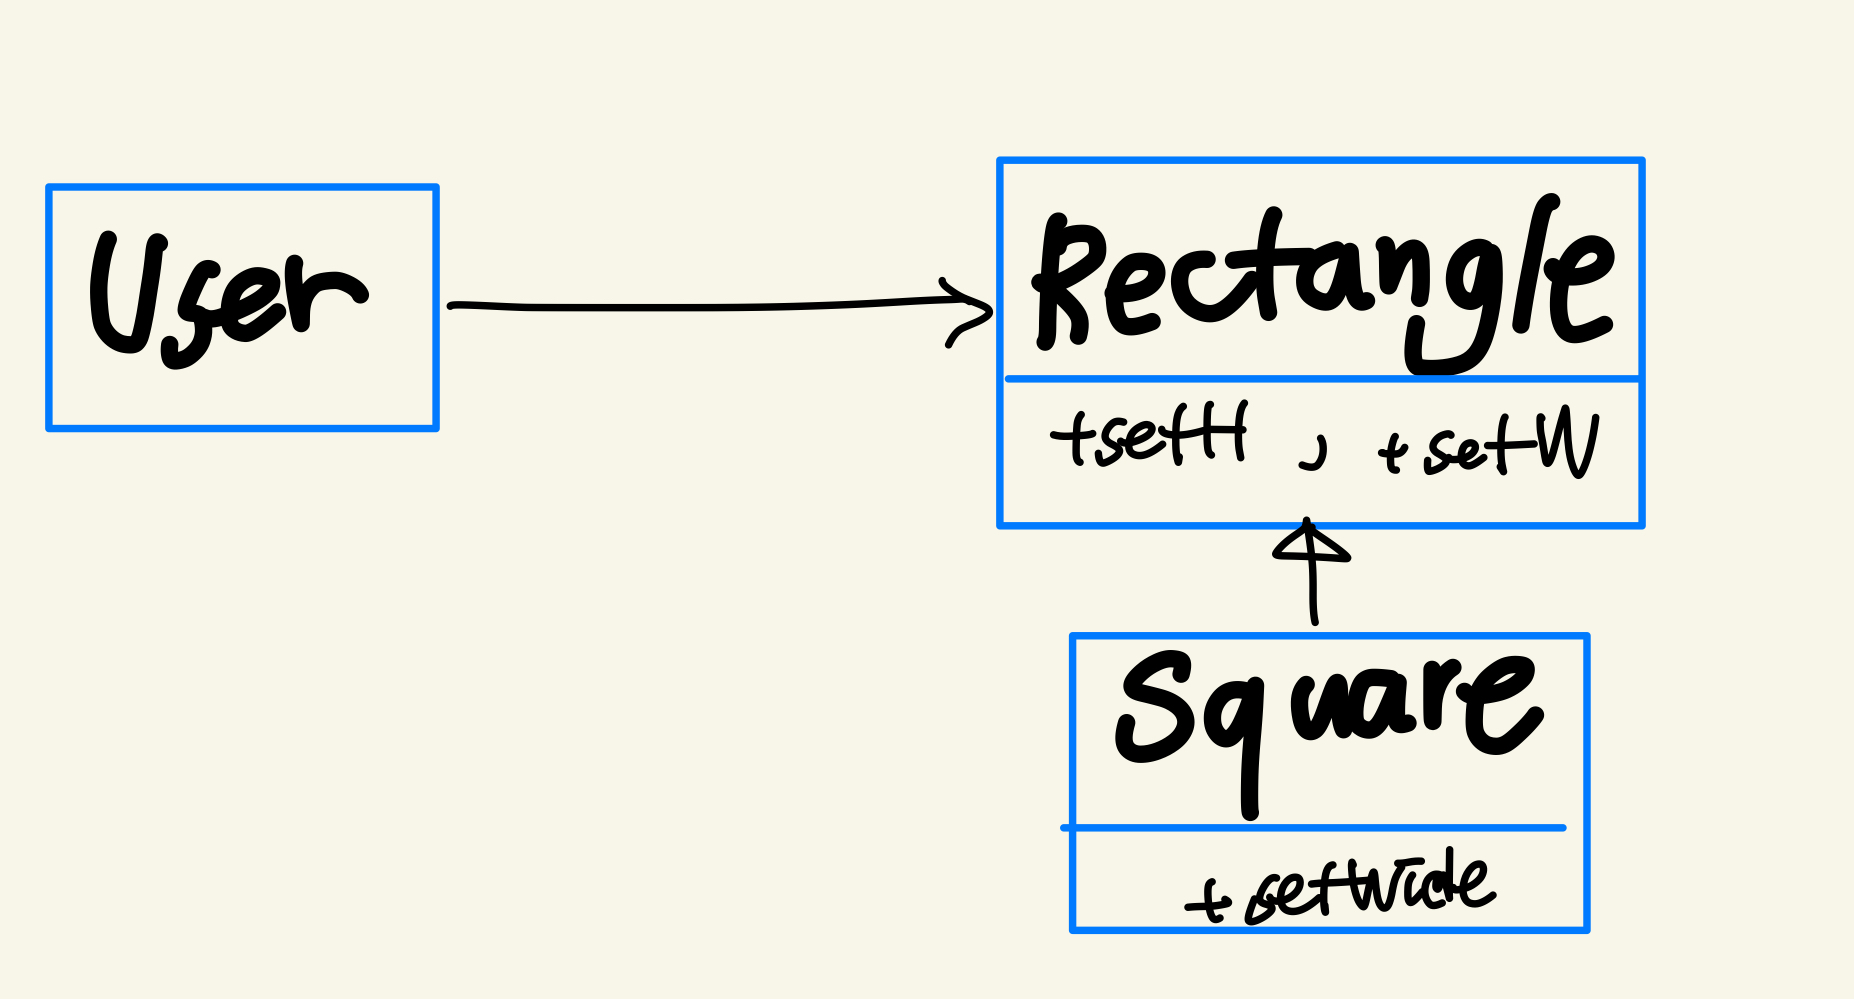 User
Rectangle
+setH , +setW
Square
+setWide